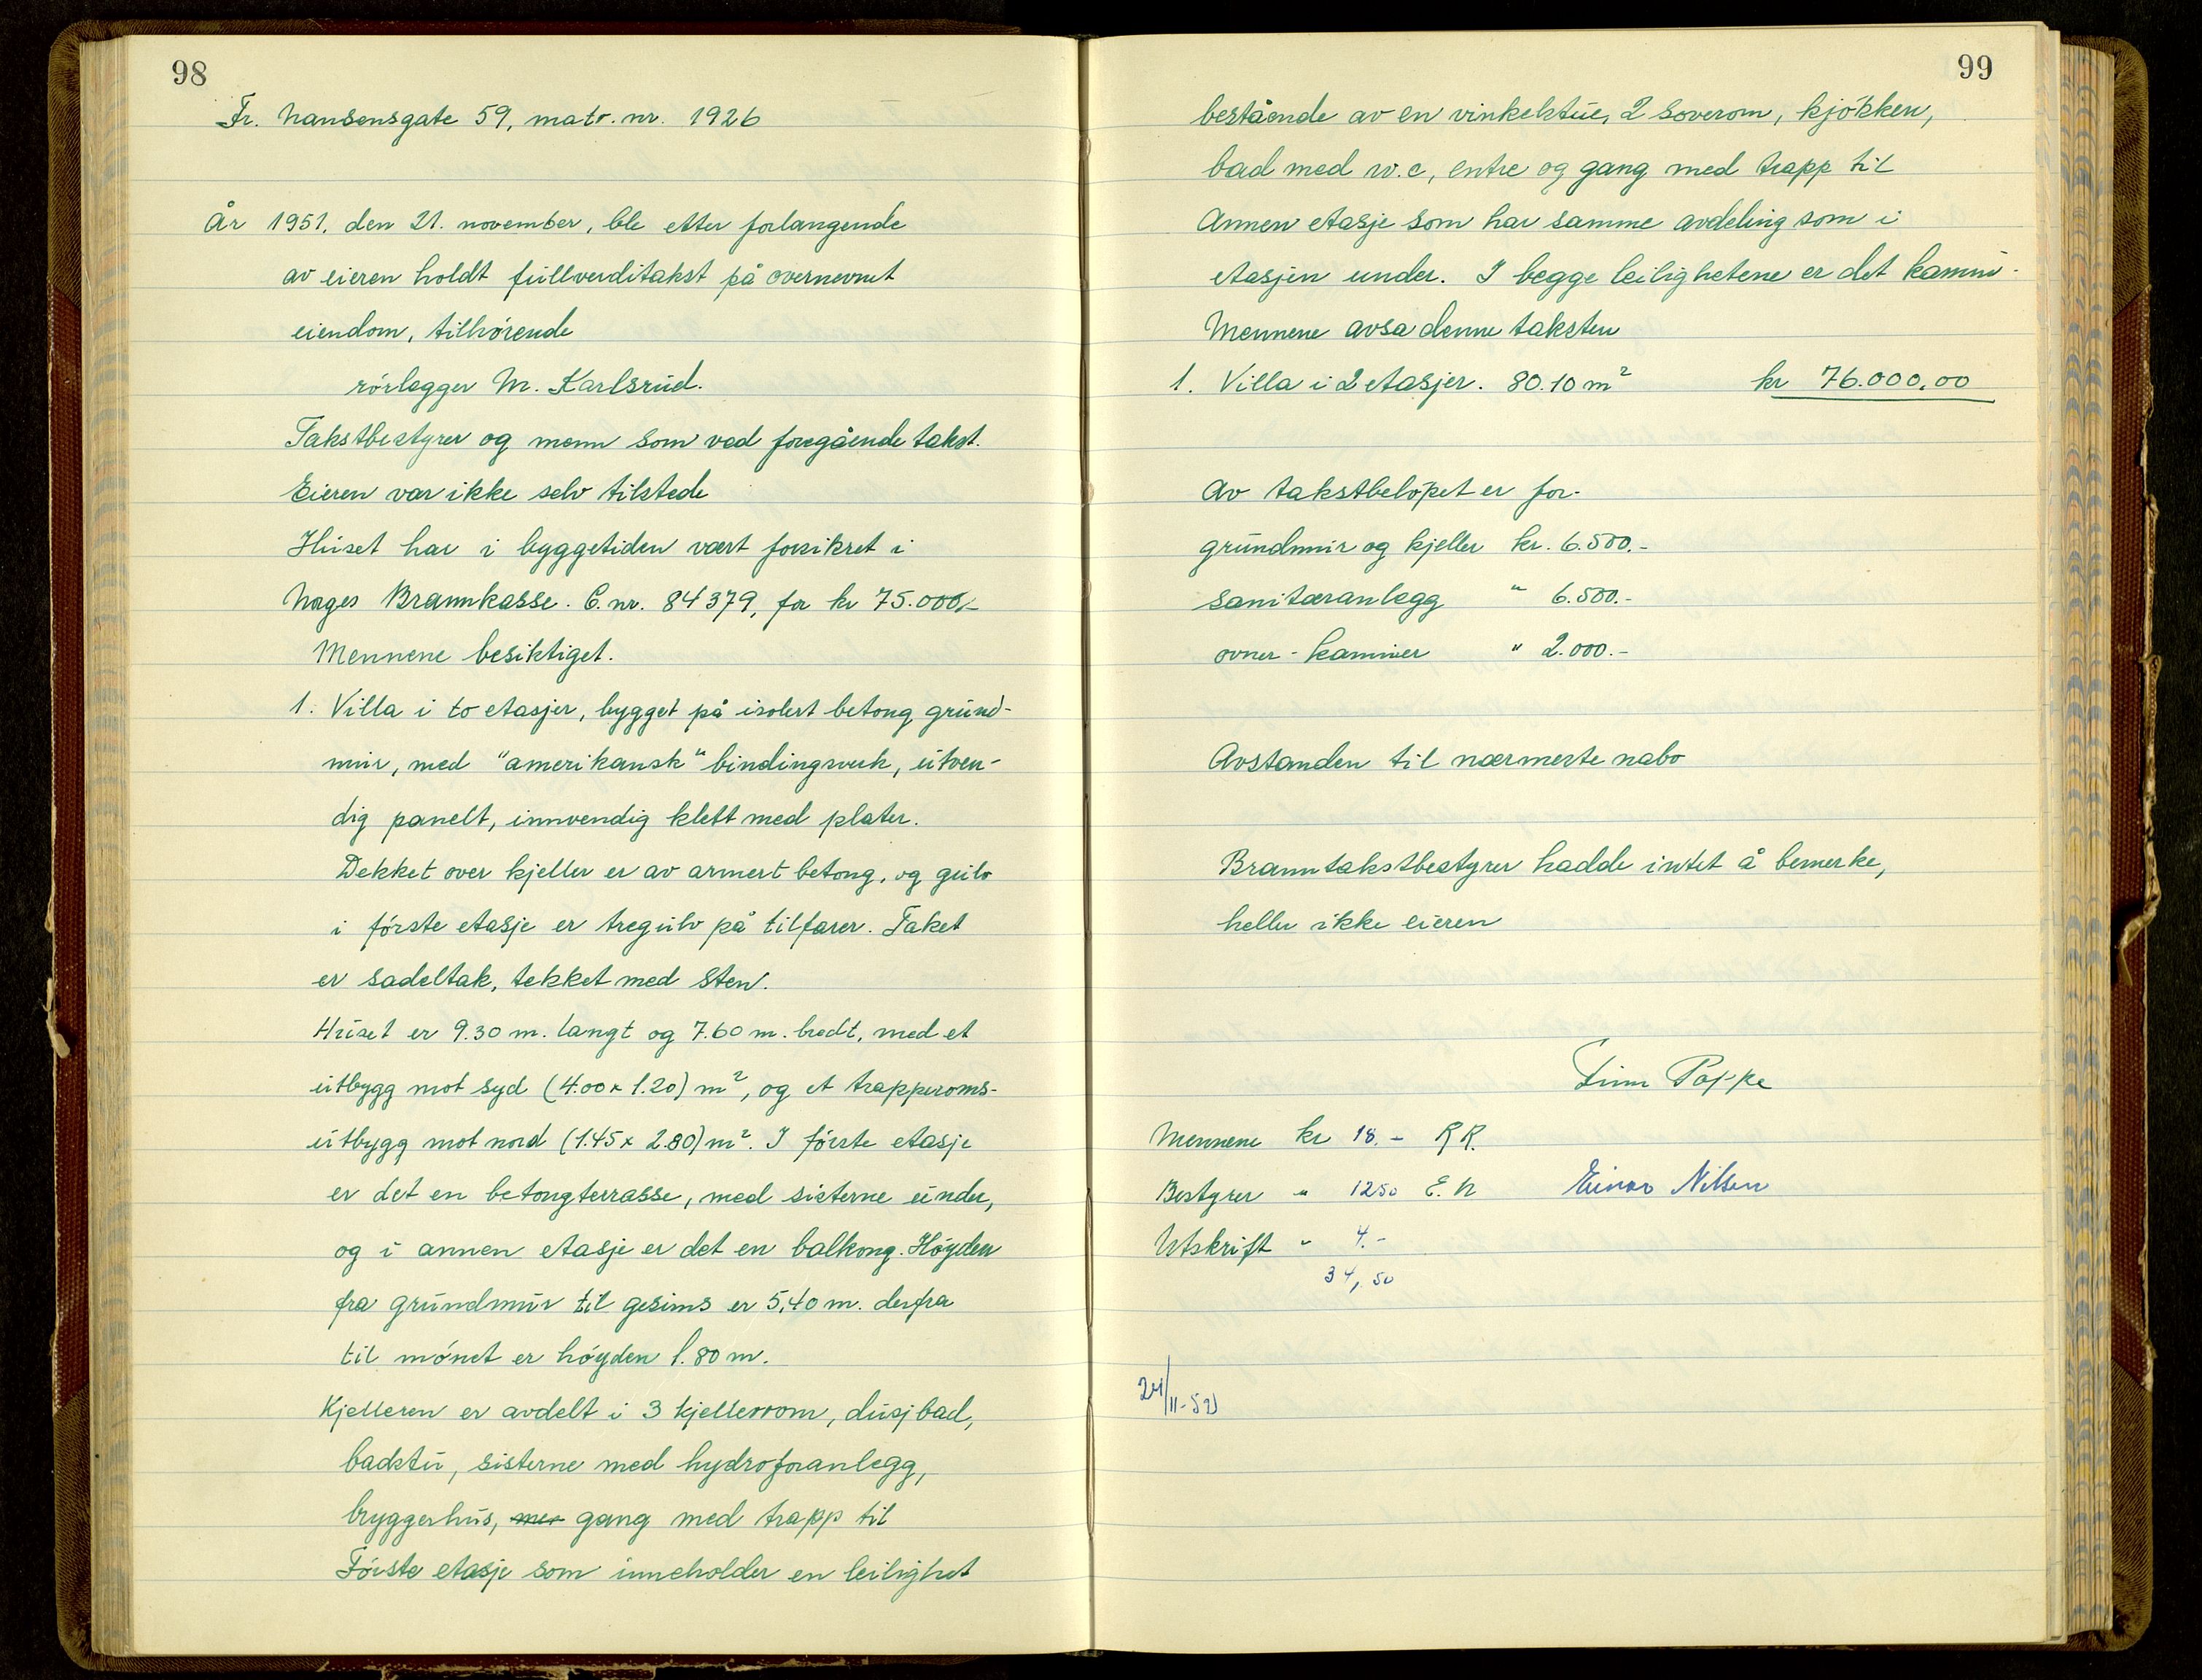 98
Fr. Nansensgate 59, matr. nr. 1926
År 1951, den 21. november, ble etter forlangende
av eieren holdt fullverditakst på overnevnt
eiendom, tilhörende
rörlegger M. Karlsrud.
Takstbestyrer og menn som ved foregående takst.
Eieren var ikke selv tilstede
Huset har i byggetiden vært forsikret i
Norges Brannkasse. C. nr. 84379, for kr 75.000.-
Mennene besiktiget.
1. Villa i to etasjer, bygget på isolert betong grund-
mur, med "amerikansk" bindingsverk, utven-
dig panelt, innvendig klett med plater.
Dekket over kjeller er av armert betong, og gulv
i förste etasje er tregulv på tilfarer. Taket
er sadeltak, tekket med sten.
Huset er 9.30 m. langt og 7.60 m. bredt, med et
utbygg mot syd (4.00 x 1.20) m², og et trapperoms-
utbygg mot nord (1.45 x 2.80) m². I förste etasje
er det en betongterrasse, med sisterne under,
og i annen etasje er det en balkong. Höyden
fra grundmur til gesims er 5,40 m. derfra
til mönet er höyden 1.80 m.
Kjelleren er avdelt i 3 kjellerrom, dusjbad,
badstu, sisterne med hydroforanlegg,
bryggerhus, gang med trapp til
Förste etasje som inneholder en leilighet
99
bestående av en vinkelstue, 2 soverom, kjökken,
bad med w.c, entre og gang med trapp til
Annen etasje som har samme avdeling som i
etasjen under. I begge leilighetene er det kamin.
Mennene avsa denne taksten
1. Villa i 2 etasjer. 80.10 m² kr 76.000,00
Av takstbelöpet er for.
grundmur og kjeller kr. 6.500.-
sanitæranlegg " 6.500.-
ovner - kaminer " 2.000.-
Avstanden til nærmeste nabo
Branntakstbestyrer hadde intet å bemerke,
heller ikke eieren
Finn Poppe
Mennene kr 18.- R R.
Bestyrer " 1250 E. N Einar Nilsen
Utskrift " 4.-
34,50